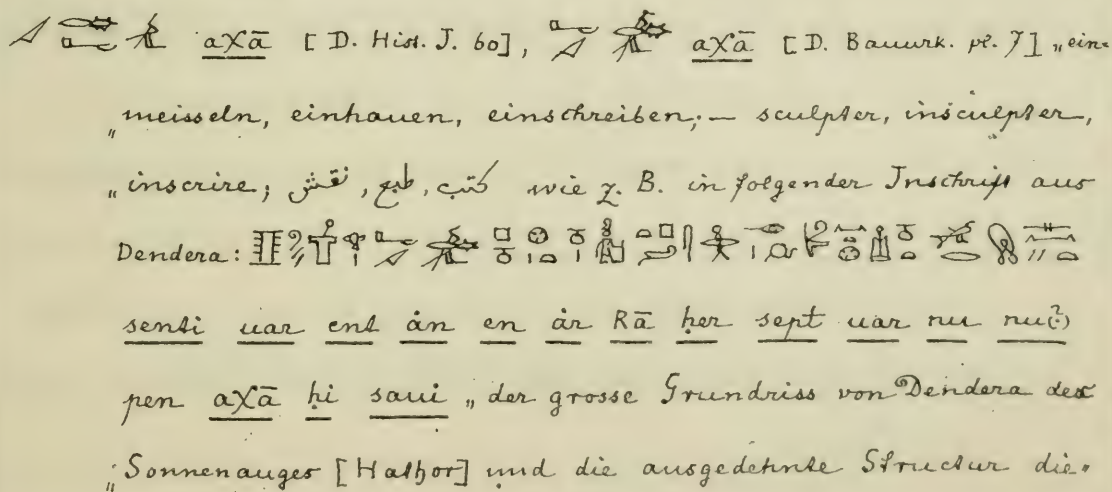 aχā [D. Hist. J. 60], aχā [D. Bauurk. pl. 7] „ein=
„meisseln, einhauen, einschreiben; — sculpter, insculpter,
„inscrire; نقش, طبع, كتب wie z. B. in folgender Inschrift aus
Dendera:
senti uar ent ȧn en ȧr Rā ḥer sept uar nu nu(?)
pen aχā ḥi saui „der grosse Grundriss von Dendera des
„Sonnenauges [Hathor] und die ausgedehnte Structur die=